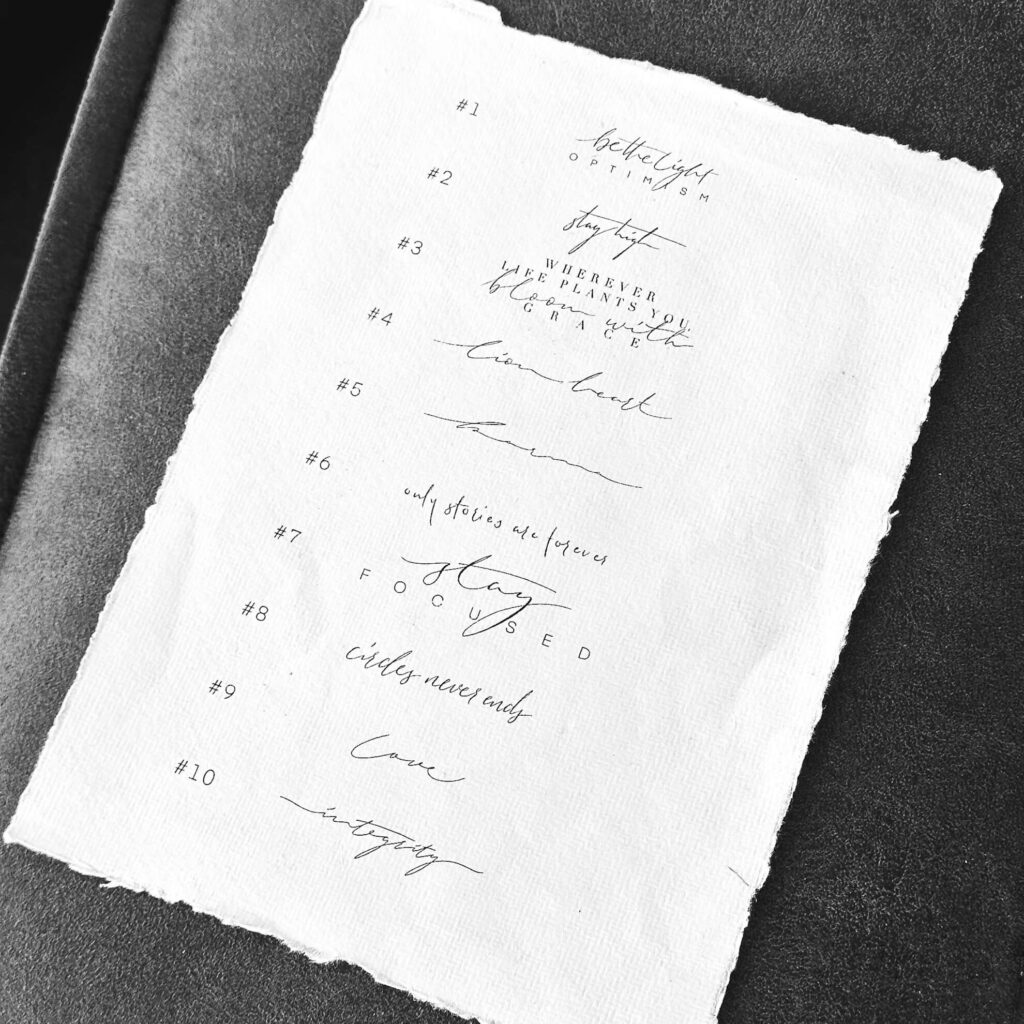 #1
be the light
OPTIMISM
#2
stay high
#3
WHEREVER
LIFE PLANTS YOU,
bloom with
GRACE
#4
lion heart
#5
karma
#6
only stories are forever
#7
stay
FOCUSED
#8
circles never ends
#9
love
#10
integrity